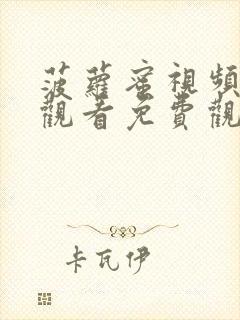 菠蘿蜜視頻
觀看免費觀
卡瓦伊